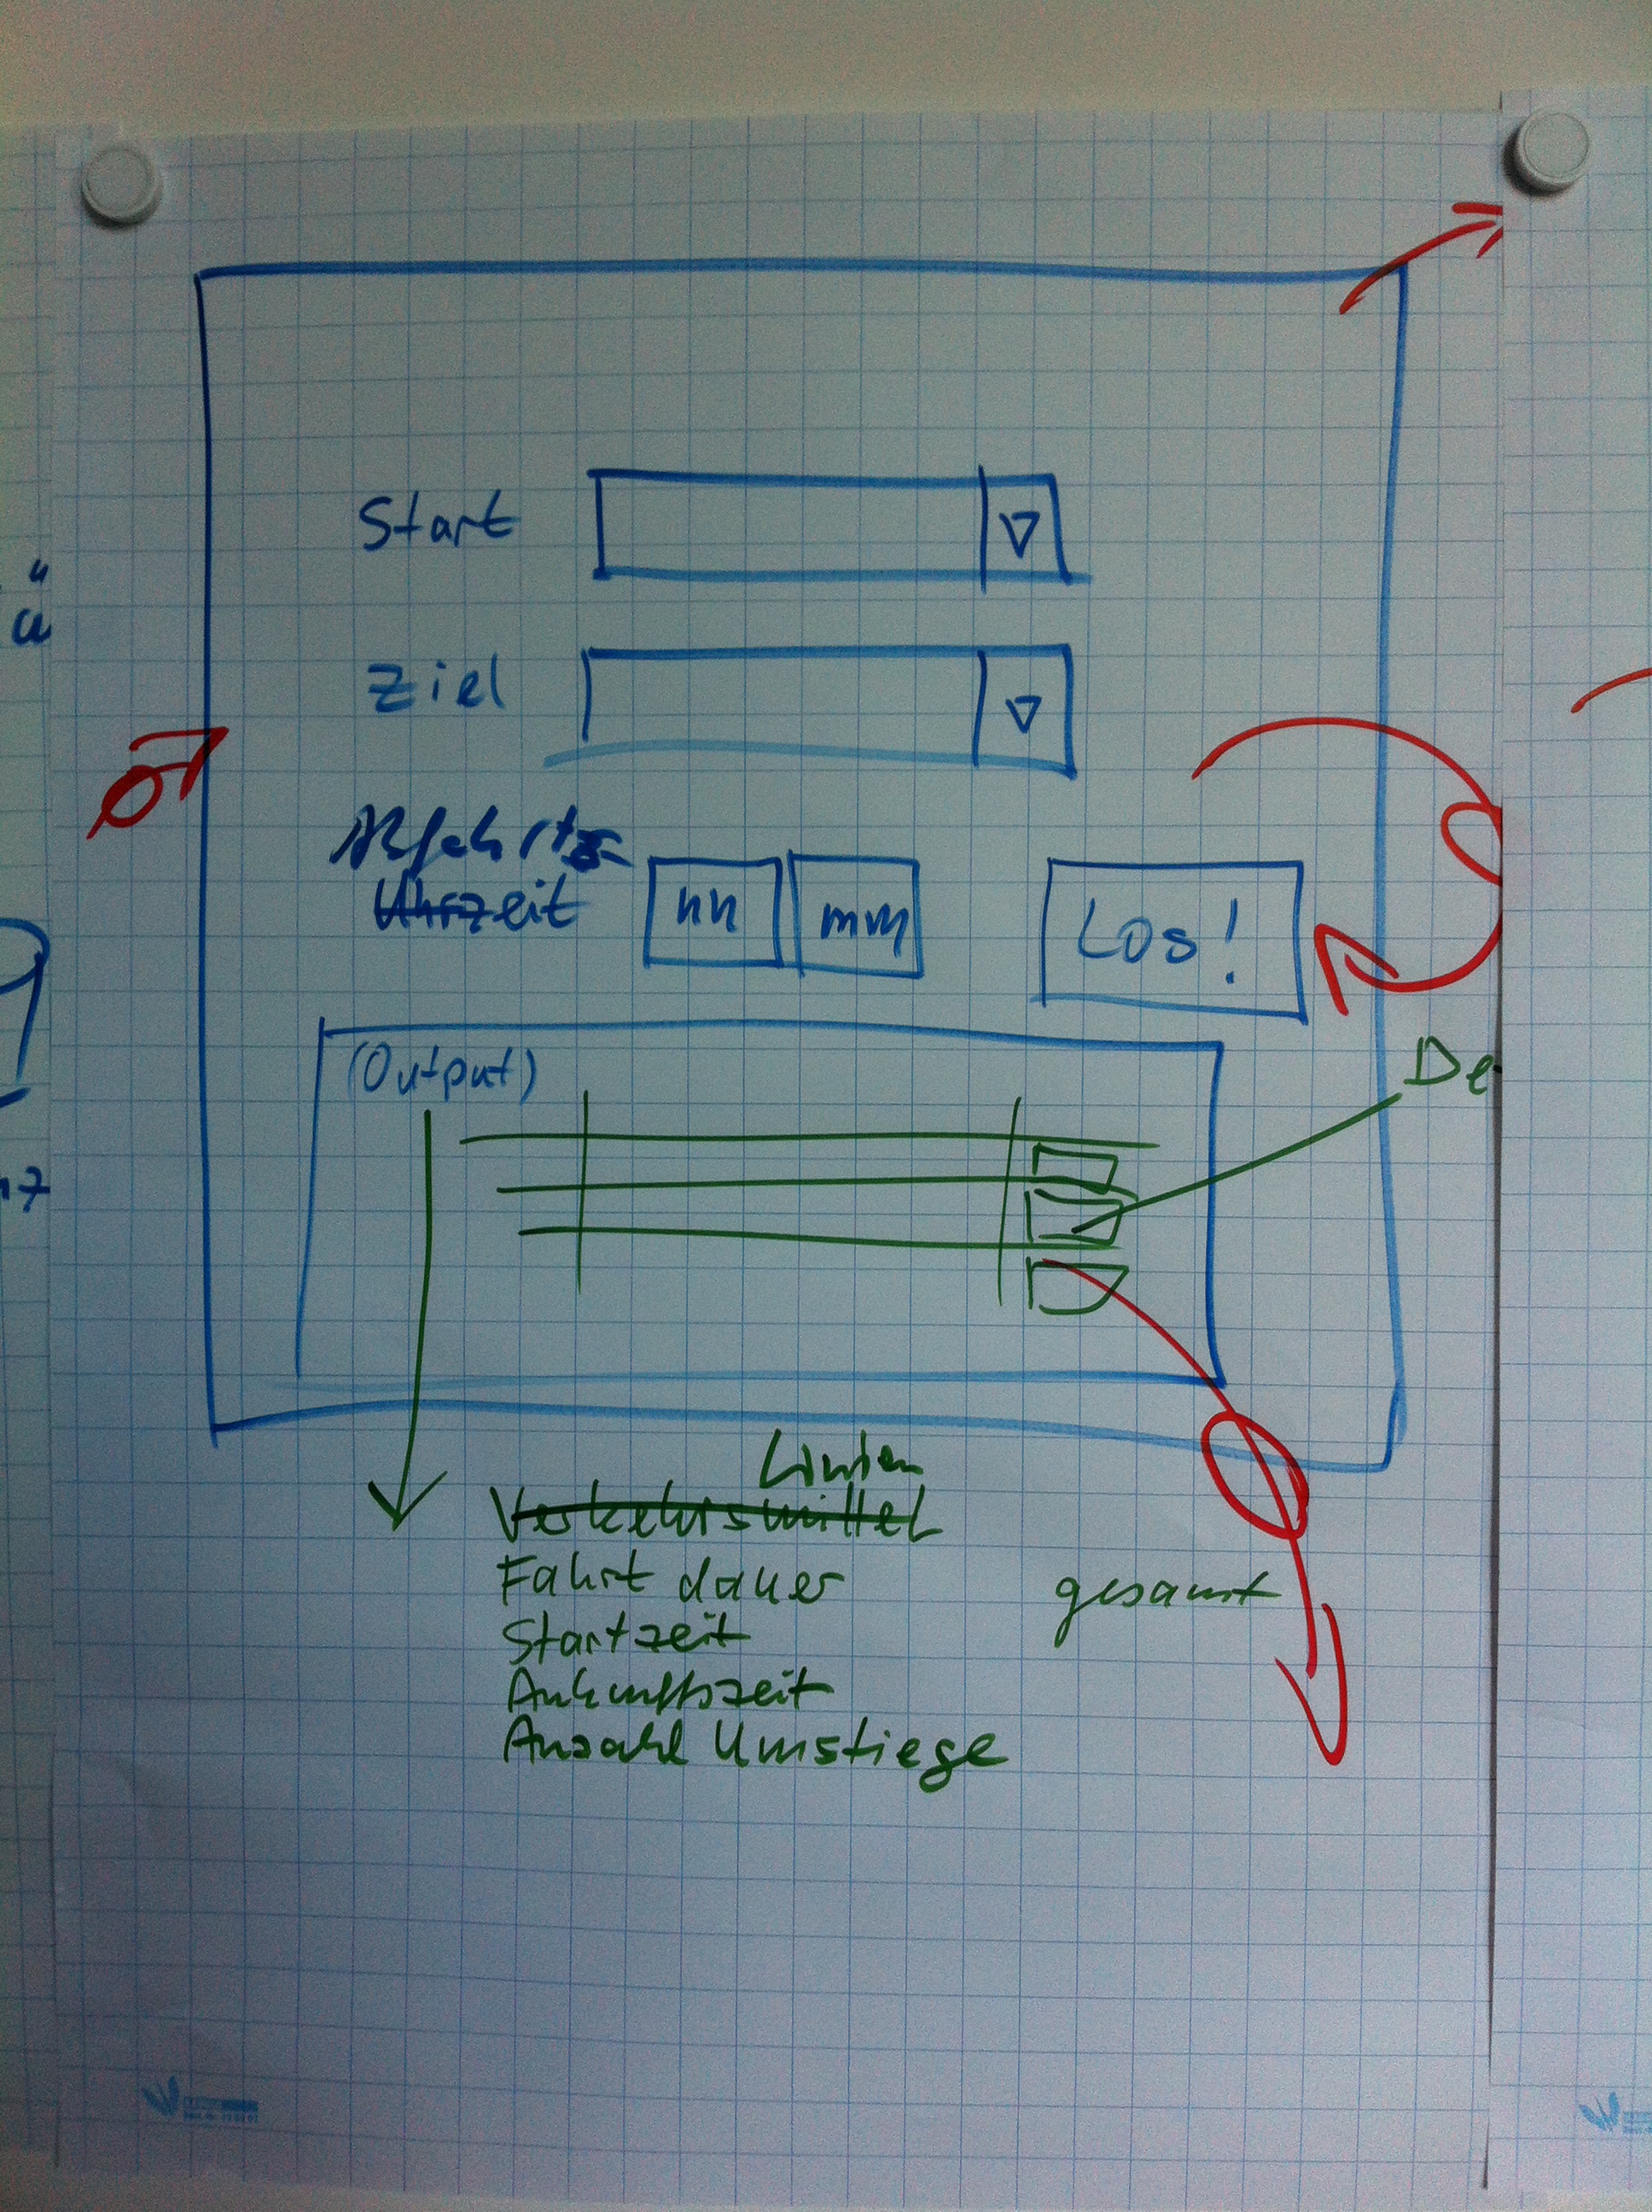 Start
Ziel
Abfahrts
Uhrzeit
hh mm
Los!
(Output)
De
ü
Linien
Verkehrsmittel
Fahrt dauer gesamt
Startzeit
Ankunftszeit
Anzahl Umstiege